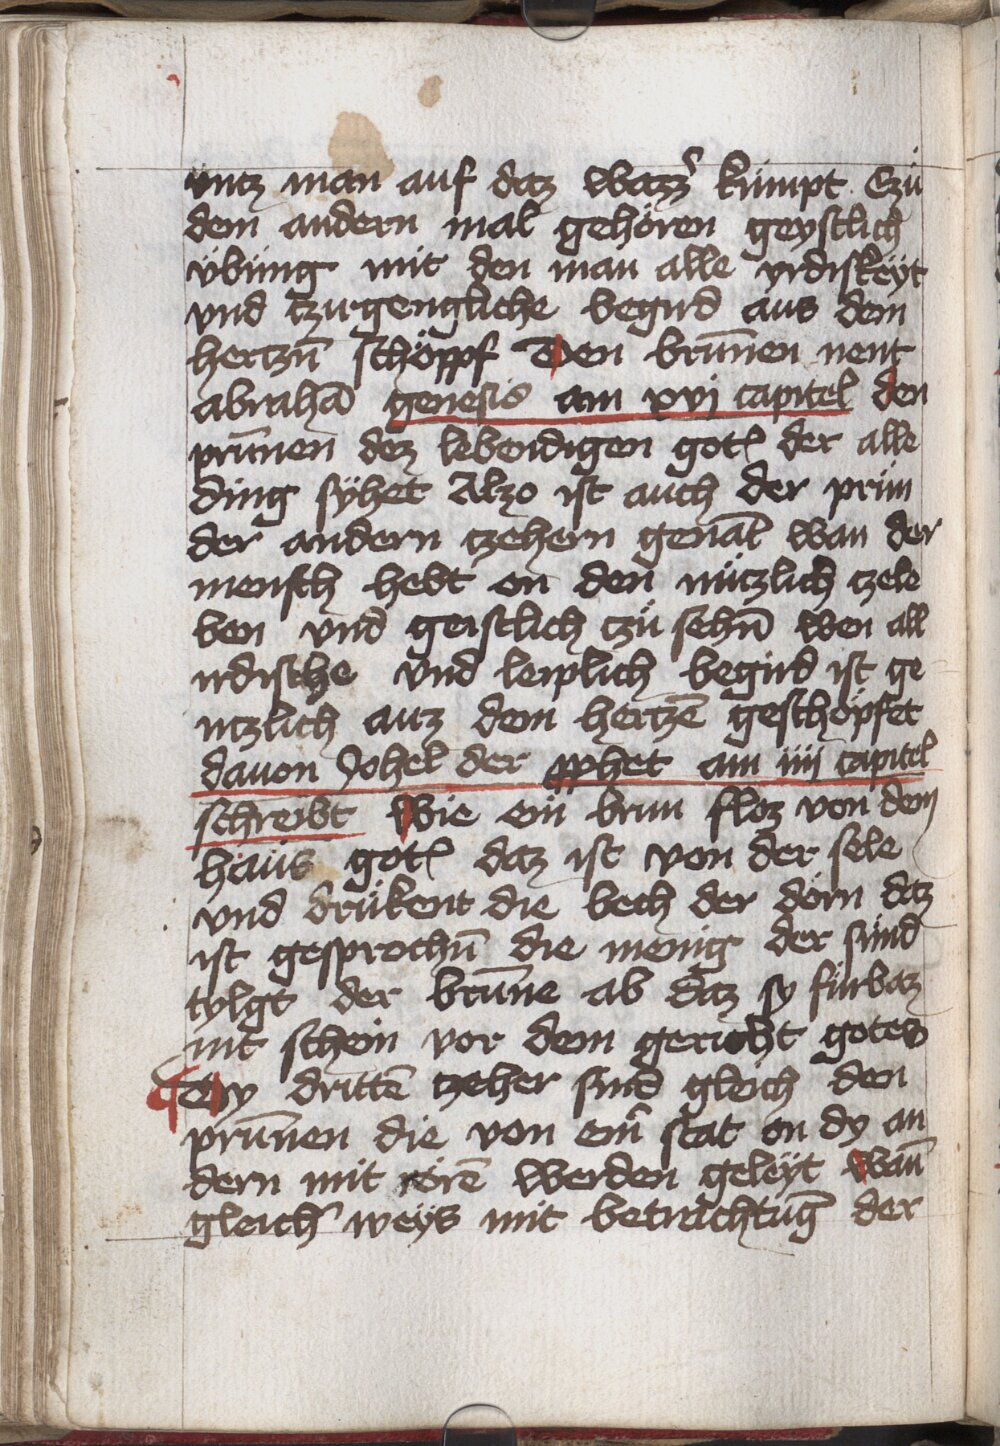 untz man auf daz wazz̕ kümpt Czü
dem andern mal gehören geystlich
übüng mit den man alle yrdiskeÿt
vnd tzurgengliche begird aus dem
hertzn̄ schöppf Den brūnen nent
abrahā genesis am xvj capitel den
prūnen dez lebendigen gotꝭ der alle
ding sÿhet Alzo ist auch der prün
der andern tzehern genāt wan der
mensch hebt on den nützlich tzele
ben vnd geistlich tzü sehn̄ wen all
irdische vnd leiplich begird ist ge
ntzlich auz dem hertzē geschöpfet
dauon Johel der ꝓphet am iiij capitel
schreibt Wie ein brun floz von dem
haüs gotꝭ daz ist von der sele
vnd drükent die bech der dörn daz
ist gesprochn̄ die menig der sünd
tylgt der brūne ab daz sy fürbaz
nit schein vor dem gericht gotes
Dy drittē tzeher sind gleich den
prūnen die von ein̄ stat on dy an
dern mit rörē werden geleÿt Wan̄
gleich̕ weÿs mit betrachtūg der